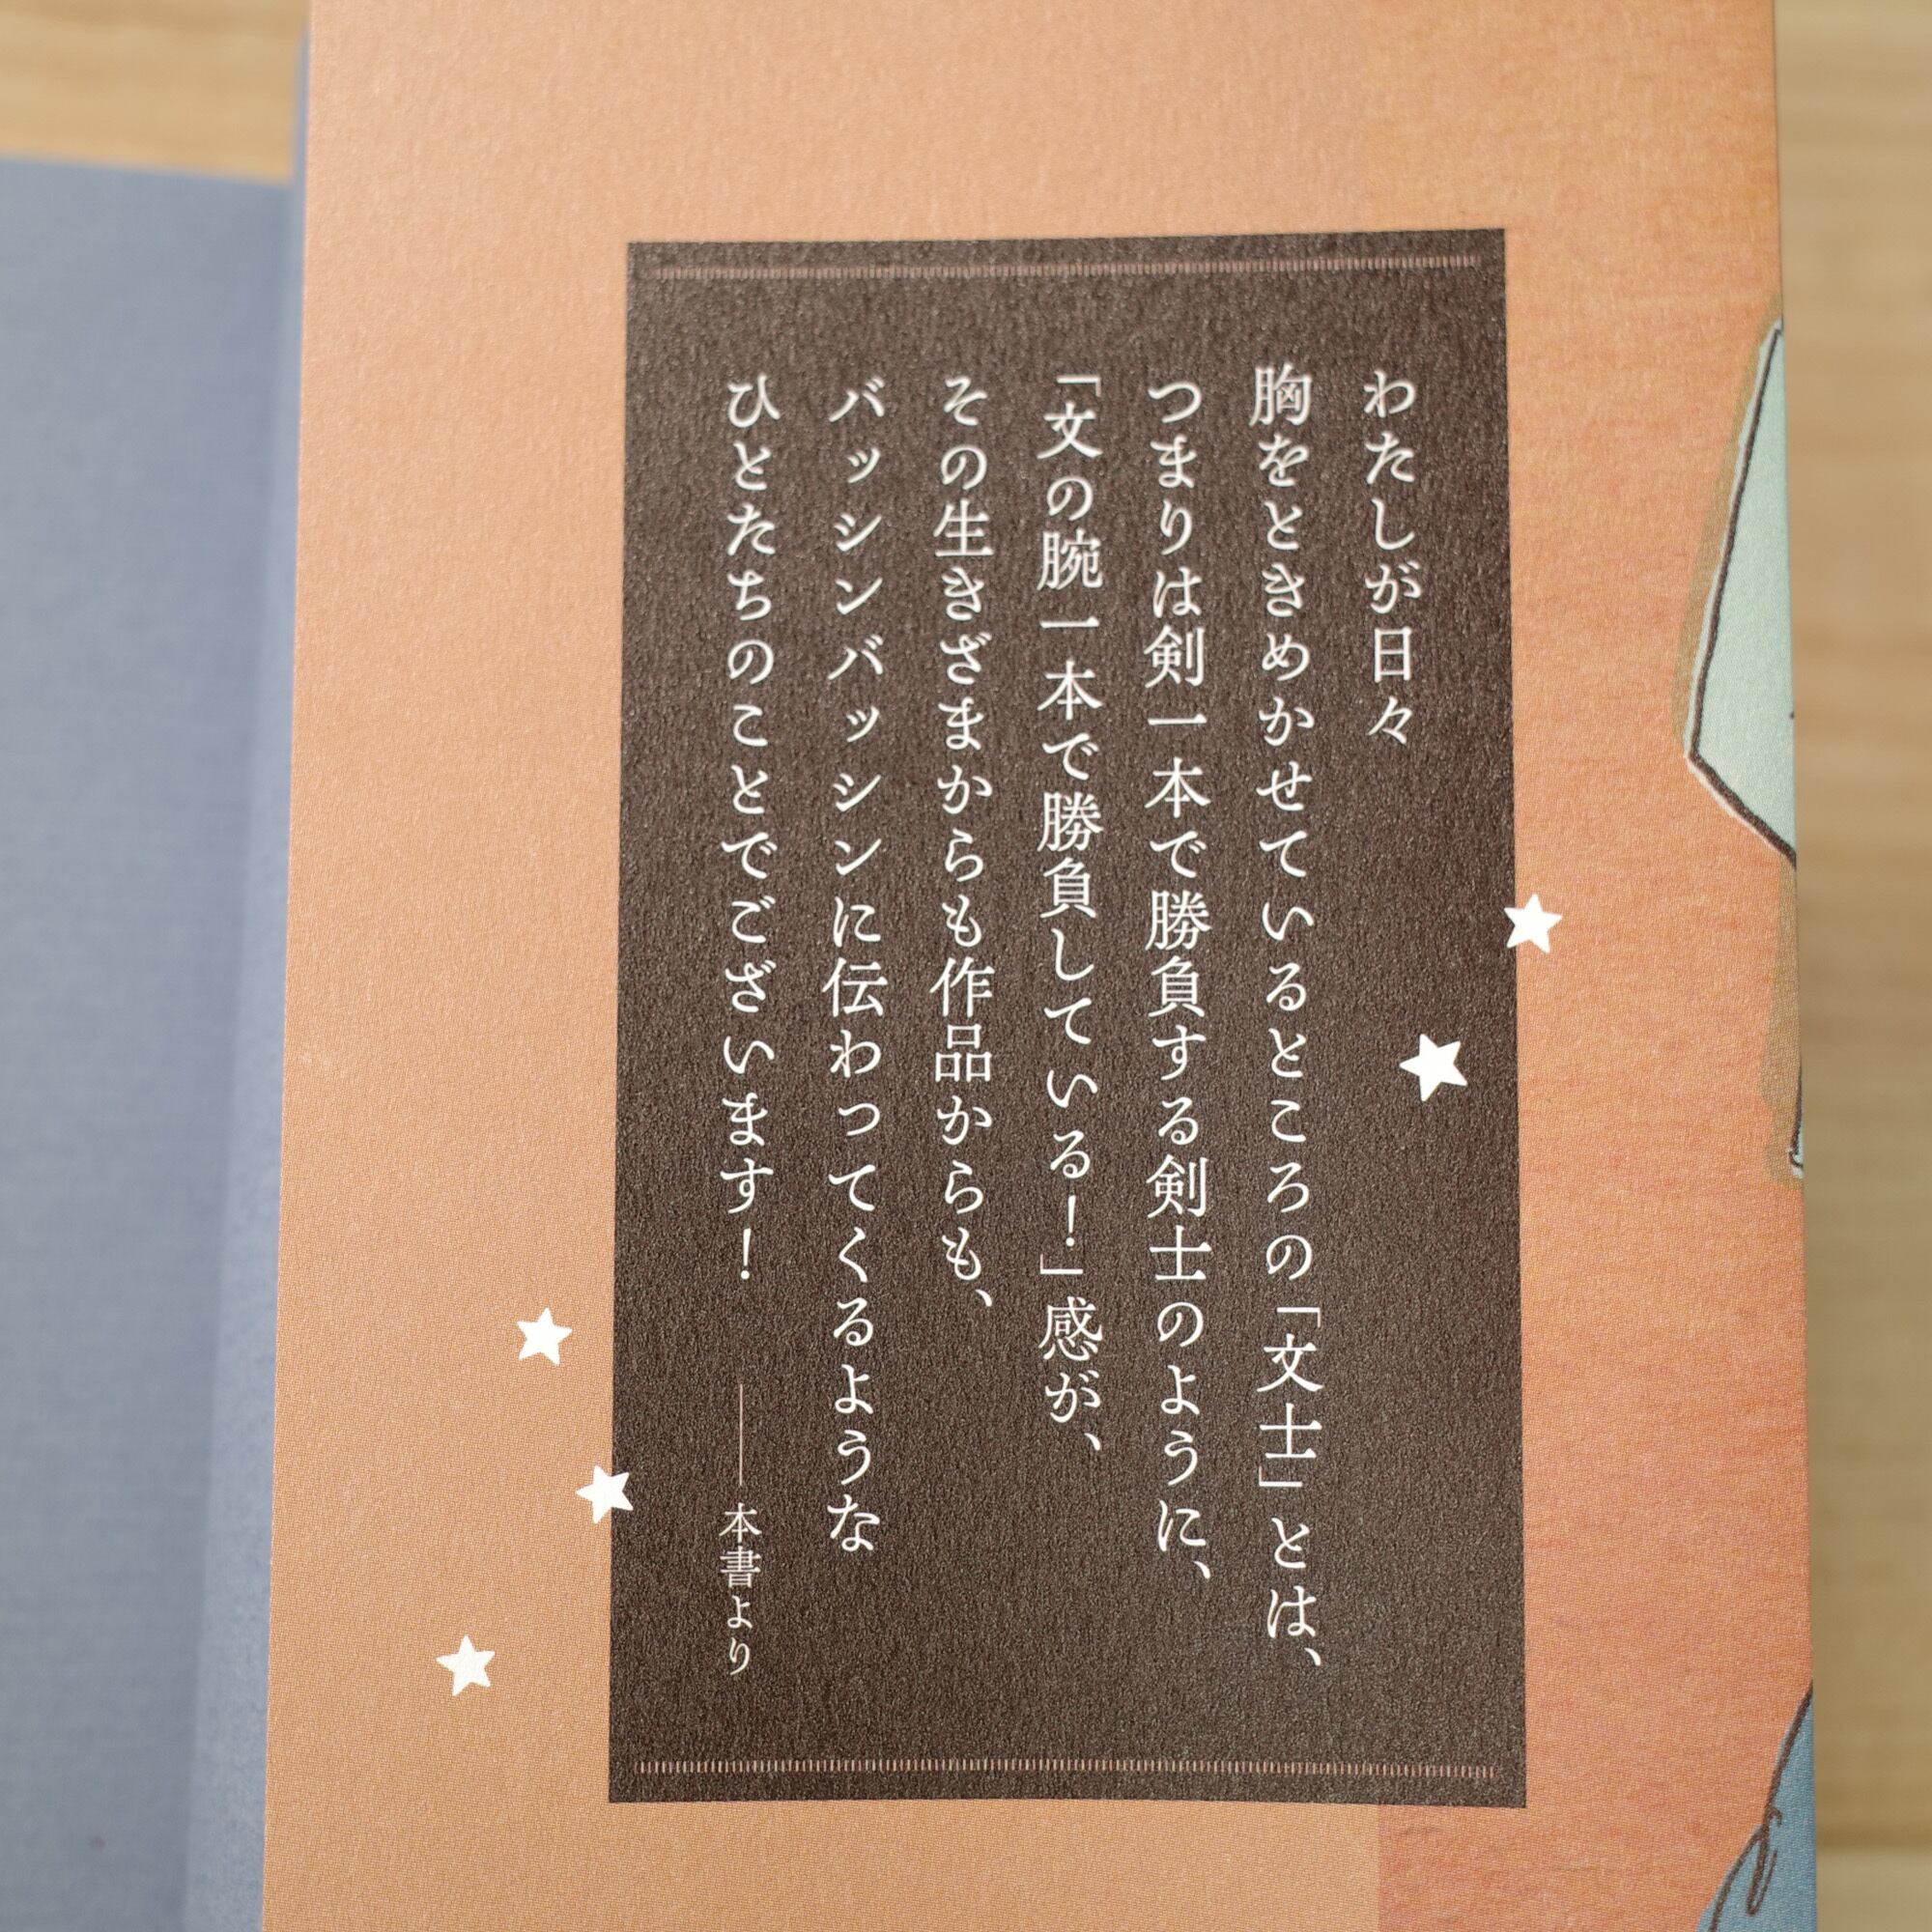 わたしが日々
胸をときめかせているところの「文士」とは、
つまりは剣一本で勝負する剣士のように、
「文の腕一本で勝負している！」感が、
その生きざまからも作品からも、
バッシンバッシンに伝わってくるような
ひとたちのことでございます！ ――本書より